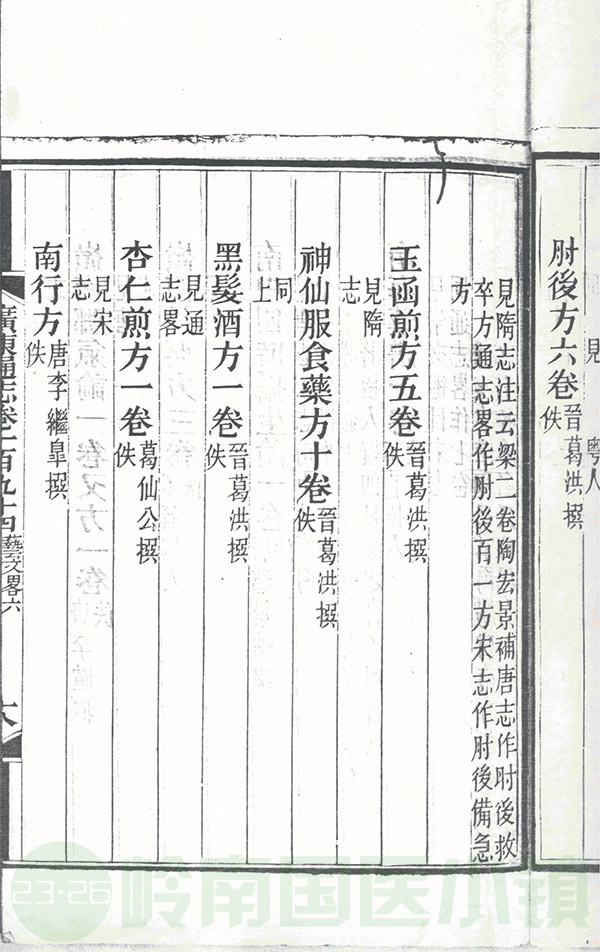 肘後方六卷
晉葛洪撰
佚
見隋志注云梁二卷陶宏景補唐志作肘後救
卒方通志畧作肘後百一方宋志作肘後備急
方
玉函煎方五卷
晉葛洪撰
佚
見隋
志
神仙服食藥方十卷
晉葛洪撰
佚
同
上
黑髮酒方一卷
晉葛洪撰
佚
見通
志畧
杏仁煎方一卷
葛仙公撰
佚
見宋
志
南行方
唐李繼皐撰
佚
廣東通志卷一百九十四
藝文畧六
岭南国医小镇